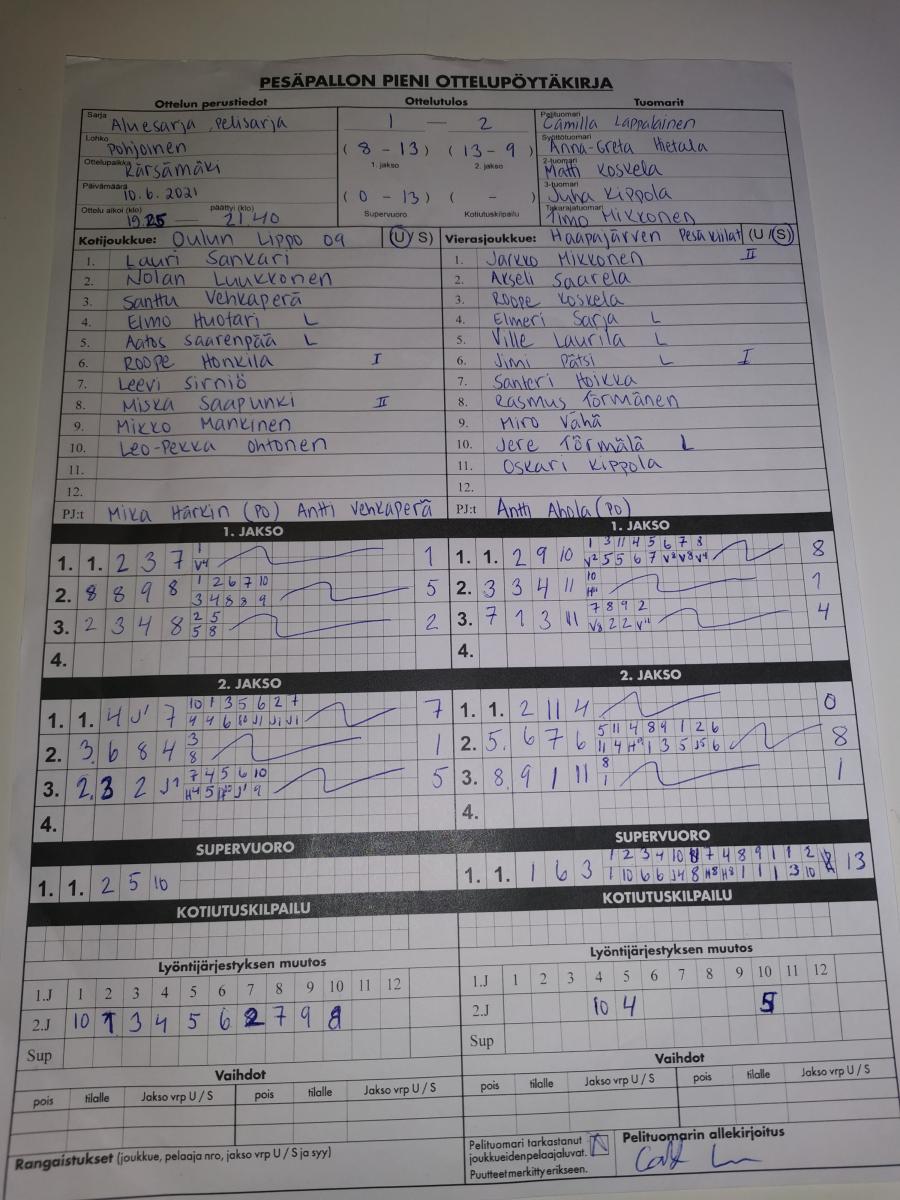 PESÄPALLON PIENI OTTELUPÖYTÄKIRJA
Ottelun perustiedot Ottelutulos Tuomarit
Sarja Aluesarja, pelisarja 1 — 2 Pelituomari Camilla Lappalainen
Lohko Pohjoinen (8 - 13) (13 - 9) Syöttötuomari Anna-Greta Hietala
1. jakso 2. jakso
Ottelupaikka Kärsämäki 2-tuomari Matti Koskela
Päivämäärä 10.6.2021 (0 - 13) ( - ) 3-tuomari Juha Kippola
Ottelu alkoi (klo) 19.25 — päättyi (klo) 21.40 Supervuoro Kotiutuskilpailu Takarajatuomari Timo Mikkonen
Kotijoukkue: Oulun Lippo 09 (U / S) Vierasjoukkue: Haapajärven Pesäkiilat (U / S)
1. Lauri Sankari 1. Jarkko Mikkonen II
2. Nolan Luukkonen 2. Akseli Saarela
3. Santtu Vehkaperä 3. Roope Koskela
4. Elmo Huotari L 4. Elmeri Sarja L
5. Aatos Saarenpää L 5. Ville Laurila L
6. Roope Honkila I 6. Jimi Pätsi L I
7. Leevi Sirniö 7. Santeri Hoikka
8. Miska Saapunki II 8. Rasmus Törmänen
9. Mikko Mankinen 9. Miro Vähä
10. Leo-Pekka Ohtonen 10. Jere Törmälä L
11. 11. Oskari Kippola
12. 12.
PJ:t Mika Härkin (PO) Antti Vehkaperä PJ:t Antti Ahola (PO)
1. JAKSO 1. JAKSO
1. 1. 2 3 7 1 V4 1 1. 1. 2 9 10 1 3 11 4 5 6 7 8 8
2. 8 8 9 8 1 2 6 7 10 3 4 8 8 9 5 2. 3 3 4 11 10 1
3. 2 3 4 8 2 5 5 8 2 3. 7 1 3 11 7 8 9 2 4
4. 4.
2. JAKSO 2. JAKSO
1. 1. 4 J1 7 10 1 3 5 6 2 7 7 1. 1. 2 11 4 0
2. 3. 6 8 4 3 8 1 2. 5. 6 7 6 5 11 4 8 9 1 2 6 8
3. 2. 3 2 7 4 5 6 10 5 3. 8. 9 1 11 8 1 1
4. 4.
SUPERVUORO SUPERVUORO
1. 1. 2 5 10 1. 1. 1 6 3 13
KOTIUTUSKILPAILU KOTIUTUSKILPAILU
Lyöntijärjestyksen muutos Lyöntijärjestyksen muutos
1.J 1 2 3 4 5 6 7 8 9 10 11 12 1.J 1 2 3 4 5 6 7 8 9 10 11 12
2.J 10 1 3 4 5 6 2 7 9 8 2.J 10 4 5
Sup Sup
Vaihdot Vaihdot
pois tilalle Jakso vrp U / S pois tilalle Jakso vrp U / S pois tilalle Jakso vrp U / S pois tilalle Jakso vrp U / S
Rangaistukset (joukkue, pelaaja nro, jakso vrp U / S ja syy) Pelituomari tarkastanut Pelituomarin allekirjoitus
joukkueiden pelaajaluvat.
Puutteet merkitty erikseen.